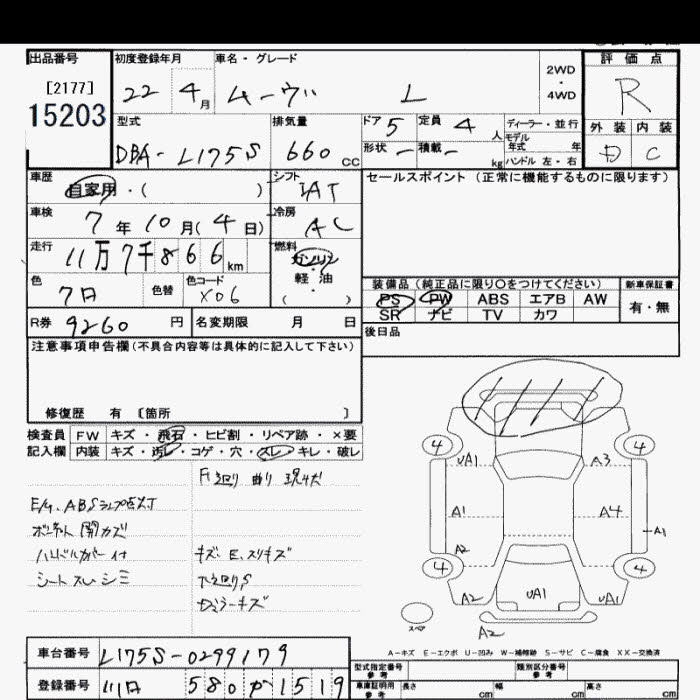 出品番号
[2177]
15203
初度登録年月
22 4月
車名・グレード
ムーヴ L
2WD
・
4WD
評価点
R
外装 内装
D C
型式
DBA-L175S
排気量
660 CC
ドア 5
定員 4 人
形状 -
積載 - kg
ディーラー・並行
モデル年式 年
ハンドル 左・右
車歴
自家用・( )
シフト
IAT
車検
7年10月(4日)
冷房
AC
走行
11万7千866km
燃料
ガソリン
・
軽油
( )
色
クロ
色替
色コード
X06
R券 9260 円
名変期限 月 日
セールスポイント (正常に機能するものに限ります)
装備品(純正品に限り〇をつけてください)
新車保証書
PS PW ABS エアB AW
SR ナビ TV カワ
有・無
後日品
注意事項申告欄(不具合内容等は具体的に記入して下さい)
修復歴 有 〔箇所 〕
検査員
記入欄
FW キズ・飛石・ヒビ割・リペア跡・×要
内装 キズ・汚レ・コゲ・穴・スレ・キレ・破レ
F廻り 曲り 現状
E/G、ABSランプ点灯
ボンネット 開カズ
ハンドルカバー付
シート スレ シミ
キズ、E、スリキズ
下廻りS
ミラーキズ
4 4
UA1 A3
A1 A4 A1
A2
4 4
A2 UA1 UA1
スペア
A2
A-キズ E-エクボ U-凹み W-補修跡 S-サビ C-腐食 XX-交換済
車台番号
L175S-0299179
登録番号
580 カ 1519
型式指定番号
参考
類別区分番号
参考
車庫証明用
参考
長さ cm
幅 cm
高さ cm